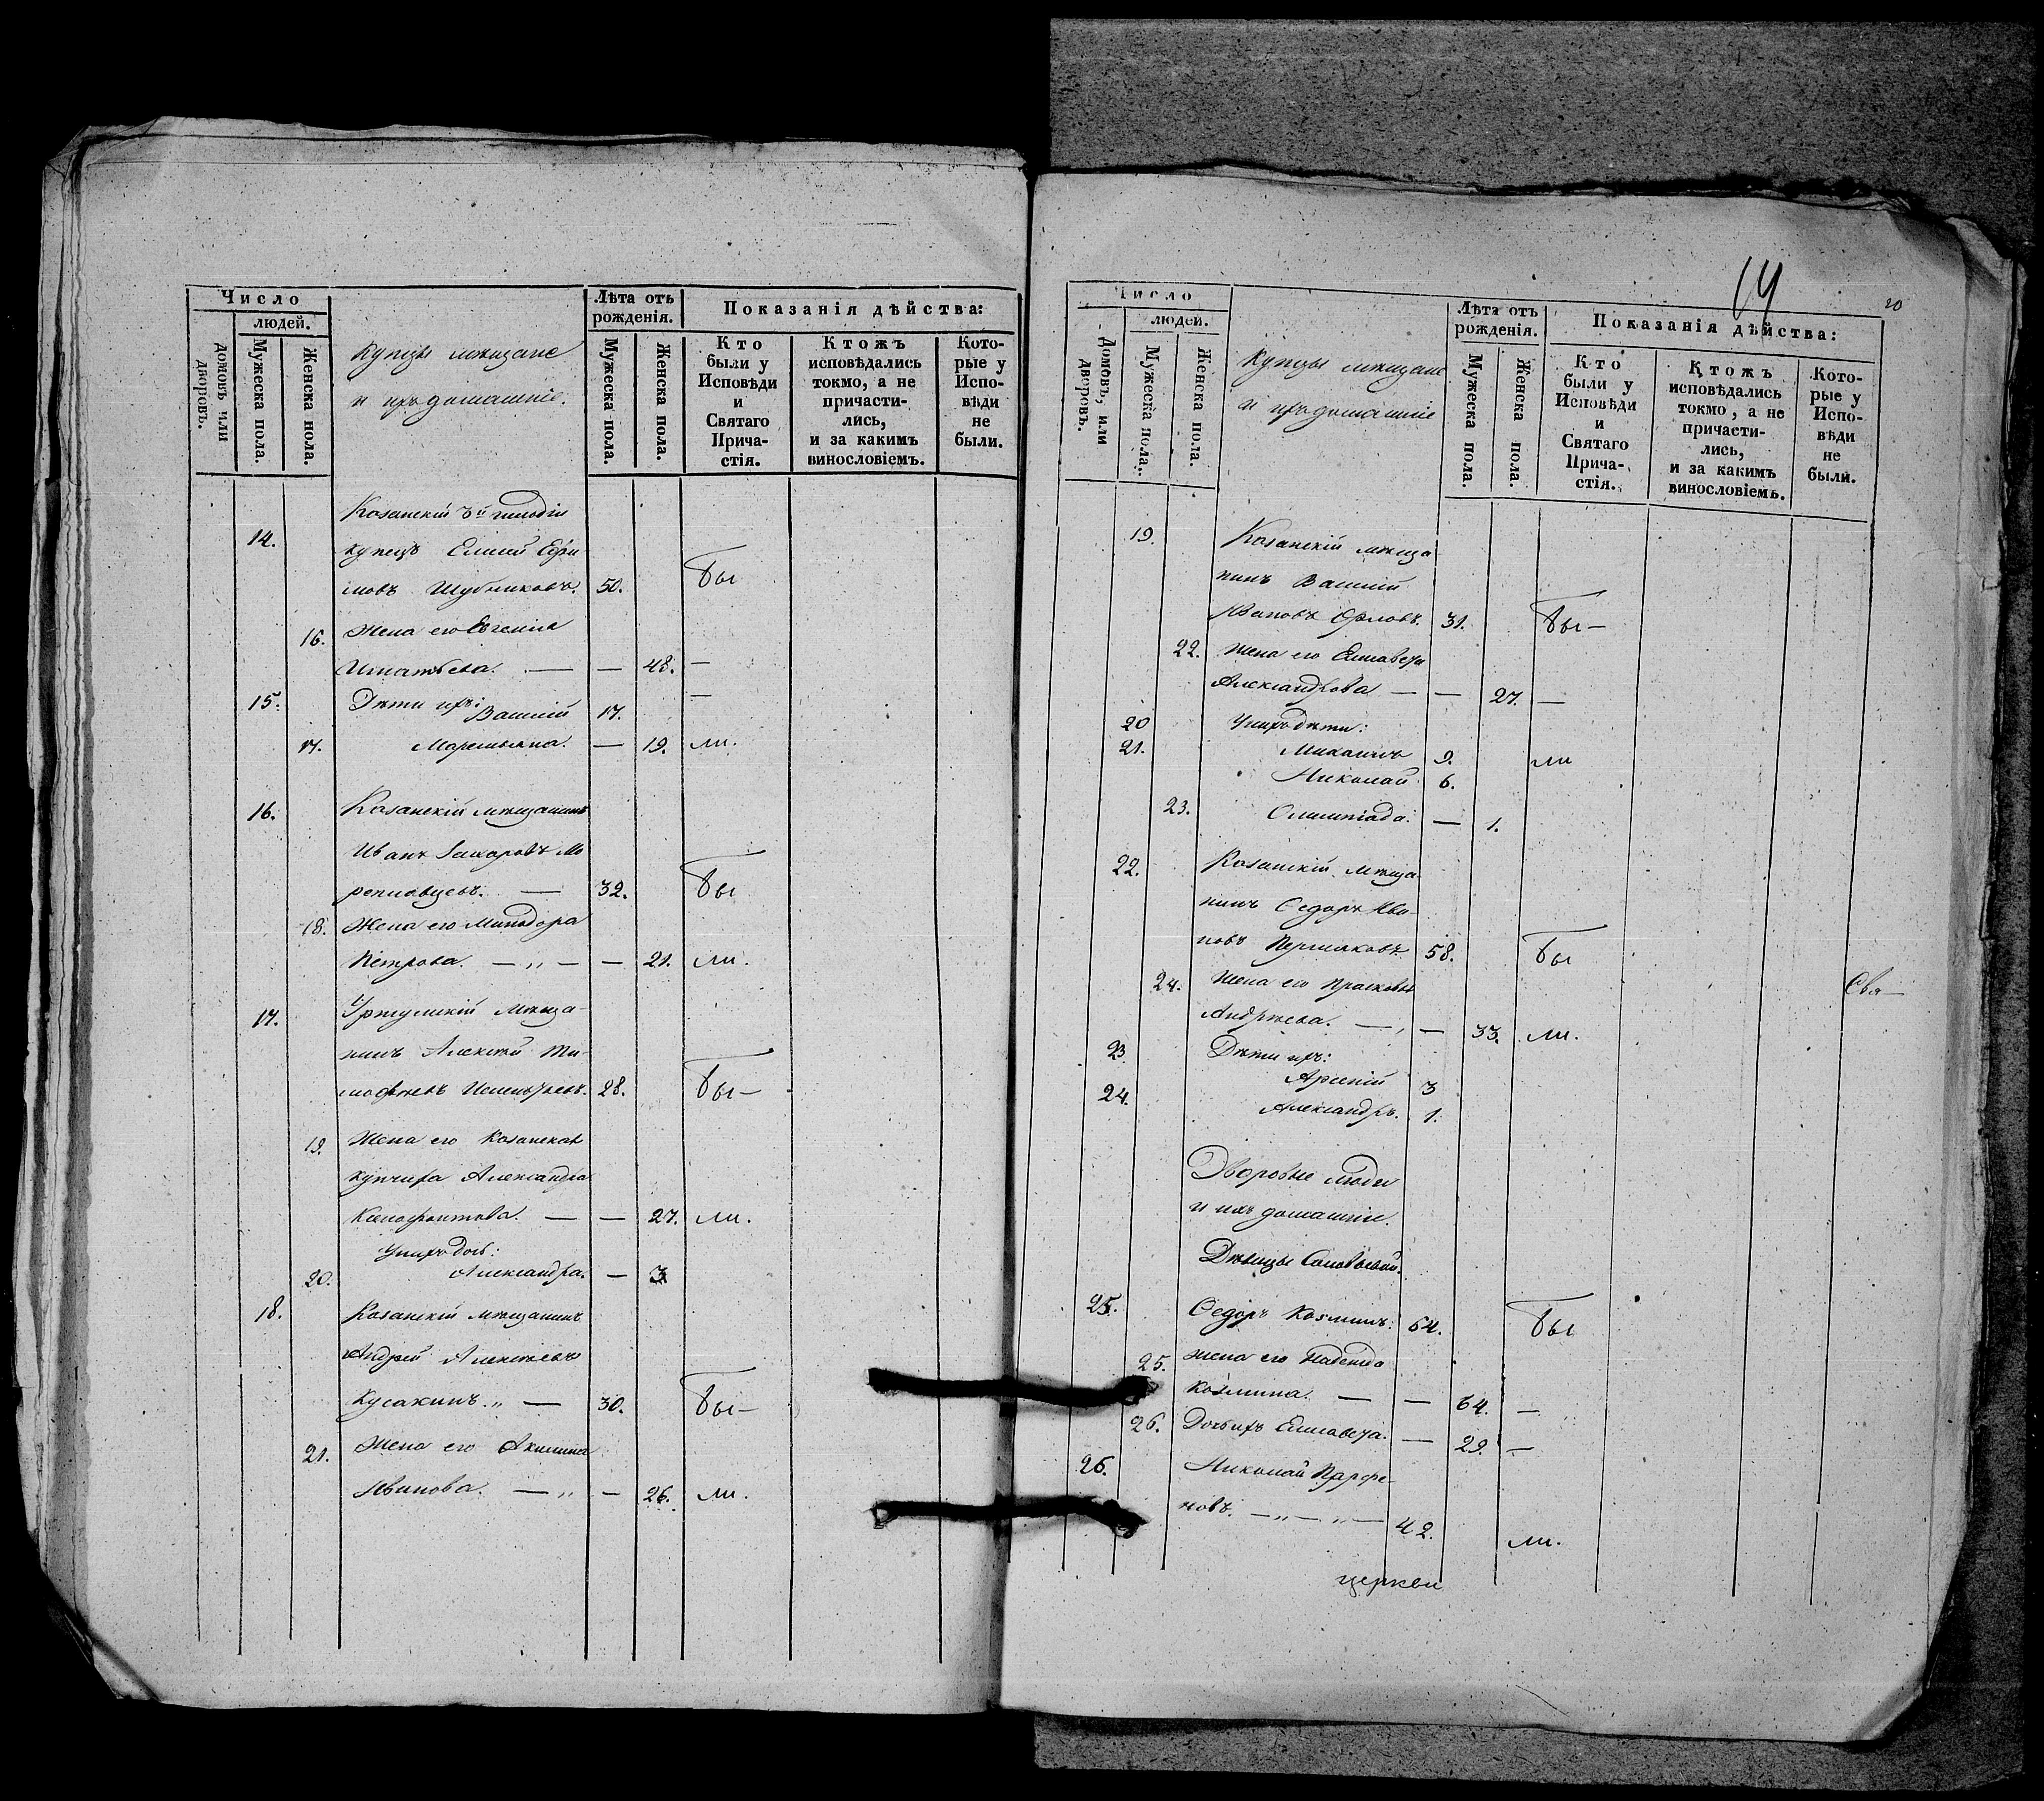 Число
людей.
домовъ или дворовъ.
Мужеска пола.
Женска пола.
Купцы мѣщане
и ихъ домашніе.
Лѣта отъ
рожденія.
Мужеска пола.
Женска пола.
Показанія дѣйства:
Кто
были у
Исповѣди
и
Святаго
Прича-
стія.
Ктожъ
исповѣдались
токмо, а не
причасти-
лись,
и за какимъ
винословіемъ.
Кото-
рые у
Испо-
вѣди
не
были.
Казанскій 3й гильдіи
14. купецъ Елисей Ефи
мовъ Шубниковъ. 50. бы
16. Жена его Евгенія
Игнатьева. — — 48. —
15. Дѣти ихъ: Василій 17. —
17. Маремьяна. — 19. ли.
16. Казанскій мѣщанинъ
Иванъ Захаровъ Мо
репловцевъ. — 32. бы
18. Жена его Минодора
Петрова. — „ — — 21. ли.
17. Уржумскій Мѣща-
нинъ Алексѣй Ти-
мофѣевъ 28. бы—
19. Жена его Казанская
купчиха Александра
Ксенофонтова. — — 27. ли.
У нихъ дочь:
20. Александра. — 3
18. Казанскій мѣщанинъ
Андрей Алексѣевъ
Кусакинъ. „ — 30. бы—
21. Жена его Акилина
Иванова. — „ — 26. ли.
14
20
Число
людей.
Домовъ, или дворовъ.
Мужеска пола.
Женска пола.
Купцы мѣщане
и ихъ домашніе
Лѣта отъ
рожденія.
Мужеска пола.
Женска пола.
Показанія дѣйства:
Кто
были у
Исповѣди
и
Святаго
Прича-
стія.
Ктожъ
исповѣдались
токмо, а не
причасти-
лись,
и за какимъ
винословіемъ.
Кото-
рые у
Испо-
вѣди
не
были.
19. Казанскій мѣща
нинъ Василій
Ивановъ Орловъ. 31. бы—
22. Жена его Елисавета
Александрова — — 27. —
20 У нихъ дѣти:
21. Михаилъ 9. ли
Николай 6.
23. Олимпіада. — 1.
22. Казанскій мѣща
нинъ Ѳедоръ Ива-
новъ Пермяковъ 58. бы
24. Жена его Прасковья
Андрѣева. — „ — 33. ли.
Свя—
23 Дѣти ихъ:
Арсеній 3
24. Александръ. 1.
Дворовые люди
и ихъ домашніе.
Дѣвицы Соловьевой.
25. Ѳедоръ Козминъ. 64. бы
25. Жена его Надежда
Козмина. — — 64. —
26. Дочь ихъ Елисавета. — 29. —
26. Николай Парфе-
новъ. — „ — „ — 42. ли.
церкви